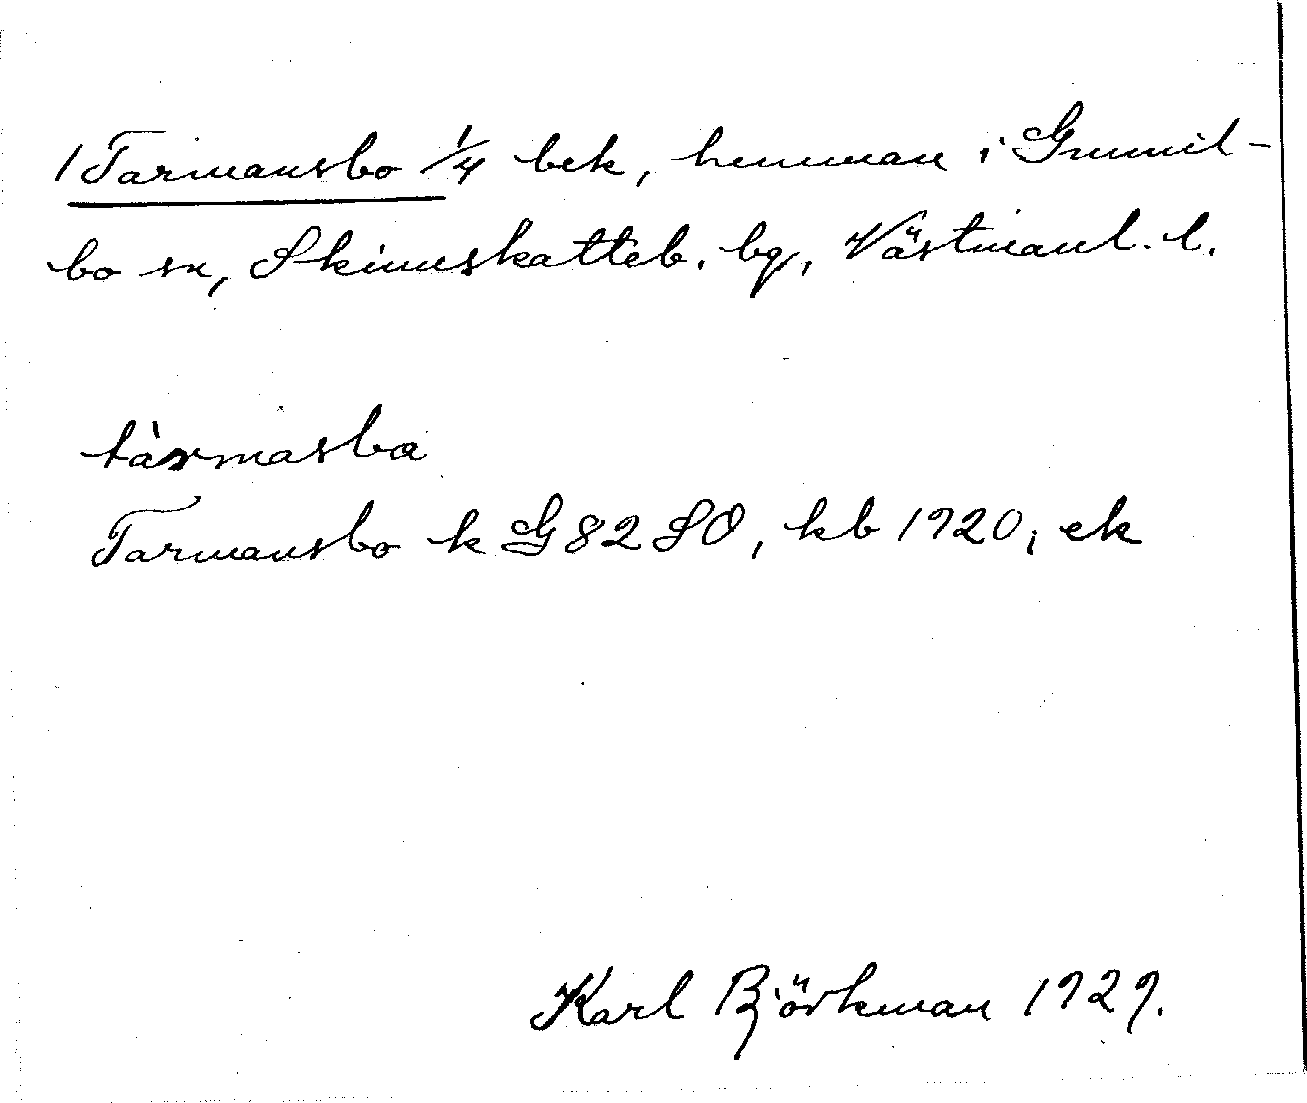 1 Tarmansbo 1/4 bek, hemman i Gunnil-
bo sn, Skinnskatteb. bg, Västmanl. l.
tàrmasba
Tarmansbo k G 82 SO, kb 1920; ek
Karl Björkman 1929.